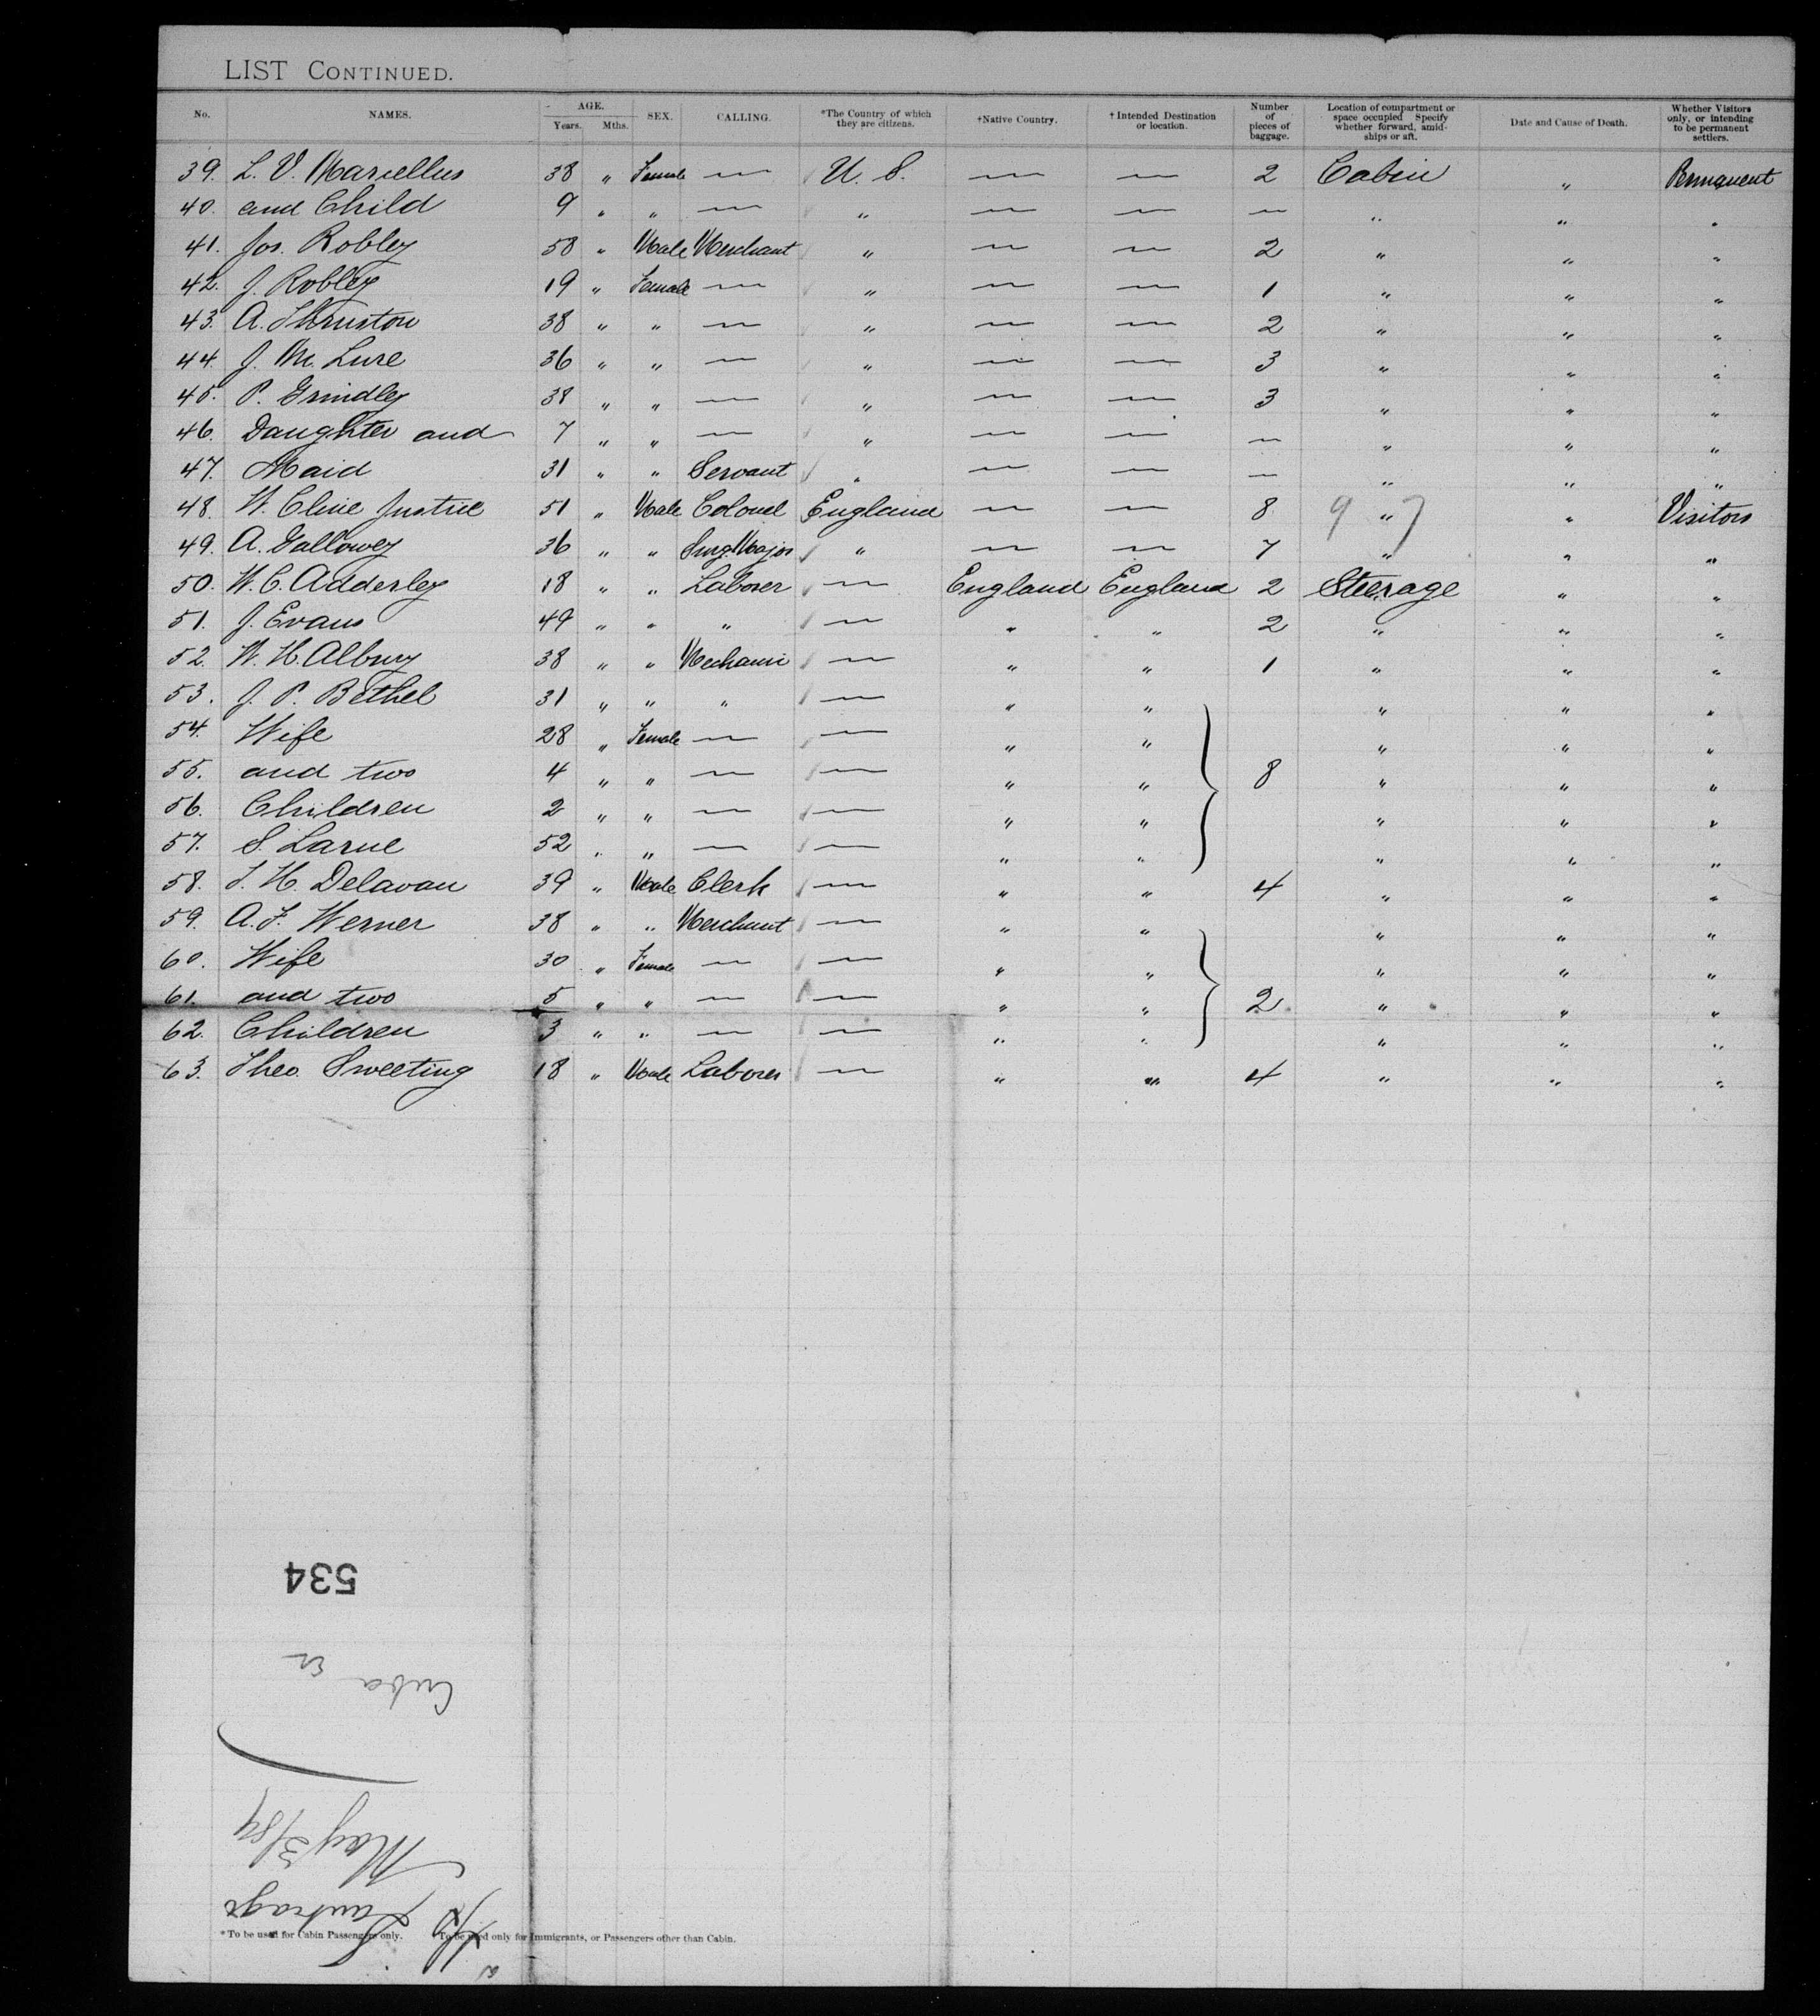 LIST CONTINUED.
No. NAMES. AGE. Years. Mths. SEX. CALLING. *The Country of which they are citizens. †Native Country. †Intended Destination or location. Number of pieces of baggage. Location of compartment or space occupied Specify whether forward, amidships or aft. Date and Cause of Death. Whether Visitors only, or intending to be permanent settlers.
39. L. V. Marcellus 38 " Female — U. S. — — 2 Cabin " Permanent
40. and Child 9 " " — " — — — " " "
41. Jos. Robley 58 " Male Merchant " — — 2 " " "
42. J. Robley 19 " Female — " — — 1 " " "
43. A. Thruston 38 " " — " — — 2 " " "
44. J. M. Lure 36 " " — " — — 3 " " "
45. P. Grindley 38 " " — " — — 3 " " "
46. Daughter and 7 " " — " — — — " " "
47. Maid 31 " " Servant " — — — " " "
48. W. Clive Justice 51 " Male Colonel England — — 8 9 " 7 " Visitors
49. A. Gallowey 36 " " Surg. Major " — — 7 " " "
50. W. C. Adderley 18 " " Laborer — England England 2 Steerage " "
51. J. Evans 49 " " " — " " 2 " " "
52. W. H. Albury 38 " " Mechanic — " " 1 " " "
53. J. P. Bethel 31 " " " — " " " " "
54. Wife 28 " Female — — " " " " "
55. and two 4 " " — — " " 8 " " "
56. Children 2 " " — — " " " " "
57. S. Larue 52 " " — — " " " " "
58. T. H. Delavan 39 " Male Clerk — " " 4 " " "
59. A. F. Werner 38 " " Merchant — " " " " "
60. Wife 30 " Female — — " " " " "
61. and two 5 " " — — " " 2 " " "
62. Children 3 " " — — " " " " "
63. Theo. Sweeting 18 " Male Laborer — " " 4 " " "
534
Cuba
May 3/89
Santiago
*To be used for Cabin Passengers only. †To be used only for Immigrants, or Passengers other than Cabin.